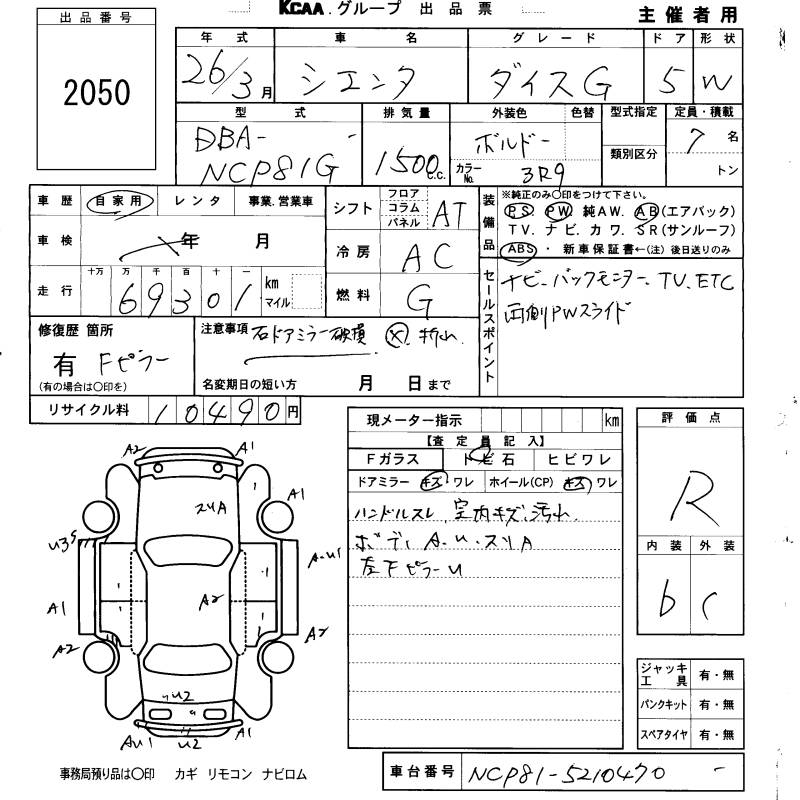 KCAA.グループ 出品票
主催者用
出品番号
2050
年式 車名 グレード ドア 形状
26/3月 シエンタ ダイスG 5 W
型式 排気量 外装色 色替 型式指定 定員・積載
DBA-
NCP81G 1500 C.C. ボルドー 類別区分 7名
カラーNo. 3R9 トン
車歴 自家用 レンタ 事業.営業車
車検 年 月
走行 十万 万 千 百 十 一 km マイル
69301
シフト フロア コラム パネル AT
冷房 AC
燃料 G
装備品 ※純正のみ○印をつけて下さい。
PS PW 純AW. AB(エアバック)
TV. ナビ. カワ. SR(サンルーフ)
ABS ・ 新車保証書←(注) 後日送りのみ
セールスポイント
ナビ. バックモニター. TV. ETC
両側PWスライド
修復歴 箇所
有 Fピラー
(有の場合は○印を)
注意事項 右ドアミラー破損
名変期日の短い方 月 日まで
リサイクル料 10490円
現メーター指示 km
【査定員記入】
Fガラス トビ石 ヒビワレ
ドアミラー キズ ワレ ホイール(CP) キズ ワレ
ハンドルスレ 室内キズ.汚れ.
ボディ A.U.スリA
左FピラーU
評価点
R
内装 外装
b C
A2 A1
A1
スリA
U3S
A-U1
A1
A2
A2
A2
U2
AU1 U2 A1
ジャッキ工具 有・無
パンクキット 有・無
スペアタイヤ 有・無
事務局預り品は○印 カギ リモコン ナビロム
車台番号 NCP81-5210470